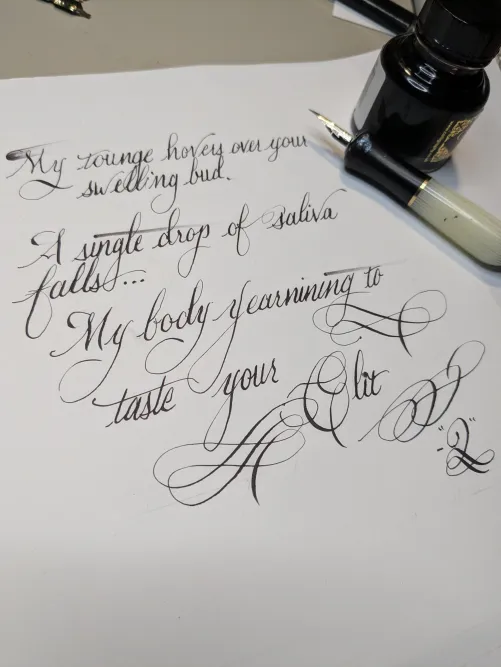 My tounge hovers over your
swelling bud.
A single drop of saliva
falls...
My body yearnining to
taste your Clit
"2"